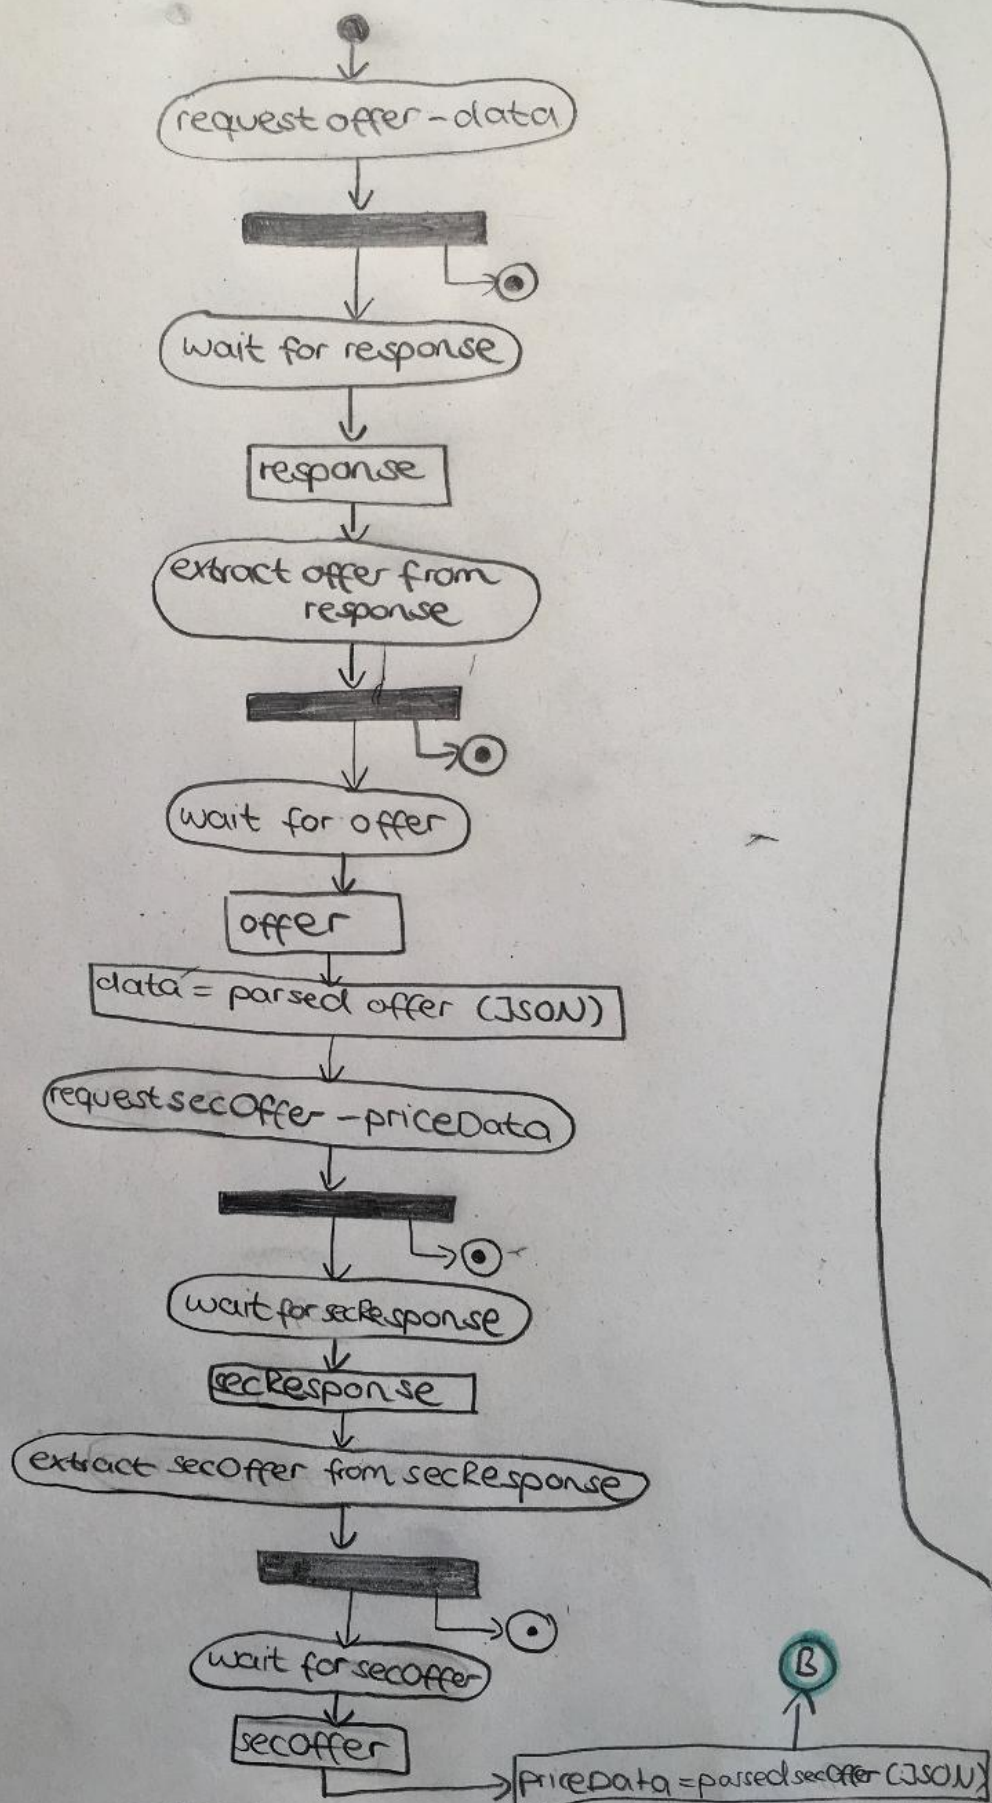 request offer - data
wait for response
response
extract offer from
response
wait for offer
offer
data = parsed offer (JSON)
request secOffer - priceData
wait for secResponse
secResponse
extract secOffer from secResponse
wait for secOffer
secOffer
B
priceData = parsed secOffer (JSON)